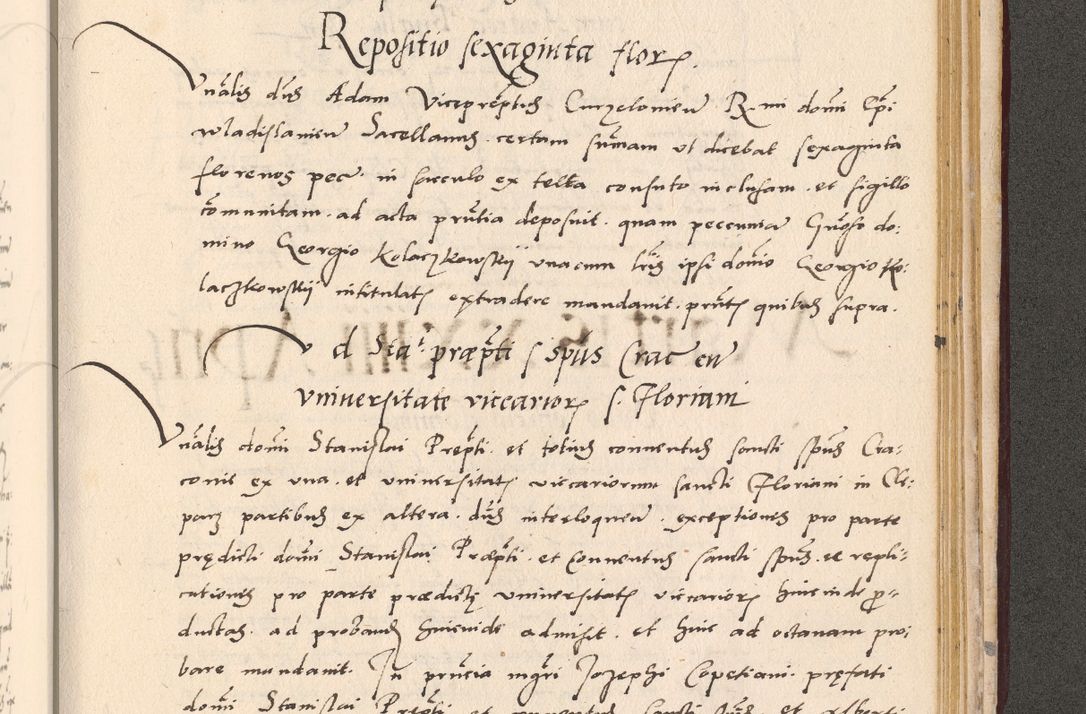 Repositio sexaginta flor.
Venerabilis dns Adam Viceprepositus Curzelovien R-mi domi Epi
wladislavien Sacellanus certam sumam ut dicebat sexaginta
florenos pecu. in sacculo ex tella consuto inclusam et sigillo
comunitam ad acta prutia deposuit quam peccunia Gnoso do:
mino Georgio Kolaczkowskij unacum lris ipsi domio Georgio Ko:
laczkowskij intitulatis extradere mandavit. prutis quibus supra.
d Stai præpti s spus Crac cu
universitate viccarior s. Floriani
Vnalis domi Stanislai Prepti et totius conventus sancti spus Cra:
covie ex una et universitatis viccariorum sancti Floriani in Cle:
parz partibus ex altera dns interloquen exceptiones pro parte
prędicti domi Stanislai Præpti et Conventus sancti spus et repli:
cationes pro parte prædictę universitatis viccarior hincinde pro:
ductas ad proband hincinde admisit et hinc ad octavam pro:
bare mandavit. In pruncia mgri Jozephi Copetiani pręfati
domi Stanislai Prepti et conventus sancti spus et